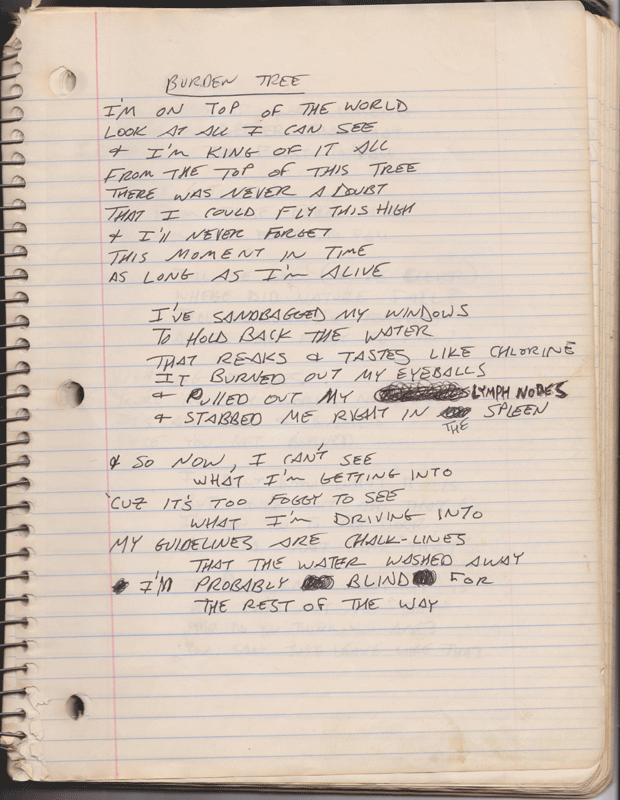 BURDEN TREE
I'M ON TOP OF THE WORLD
LOOK AT ALL I CAN SEE
& I'M KING OF IT ALL
FROM THE TOP OF THIS TREE
THERE WAS NEVER A DOUBT
THAT I COULD FLY THIS HIGH
& I'll NEVER FORGET
THIS MOMENT IN TIME
AS LONG AS I'M ALIVE
I'VE SANDBAGGED MY WINDOWS
TO HOLD BACK THE WATER
THAT REAKS & TASTES LIKE CHLORINE
IT BURNED OUT MY EYEBALLS
& PULLED OUT MY LYMPH NODES
& STABBED ME RIGHT IN THE SPLEEN
& SO NOW, I CAN'T SEE
WHAT I'M GETTING INTO
'CUZ IT'S TOO FOGGY TO SEE
WHAT I'M DRIVING INTO
MY GUIDELINES ARE CHALK-LINES
THAT THE WATER WASHED AWAY
I'M PROBABLY BLIND FOR
THE REST OF THE WAY